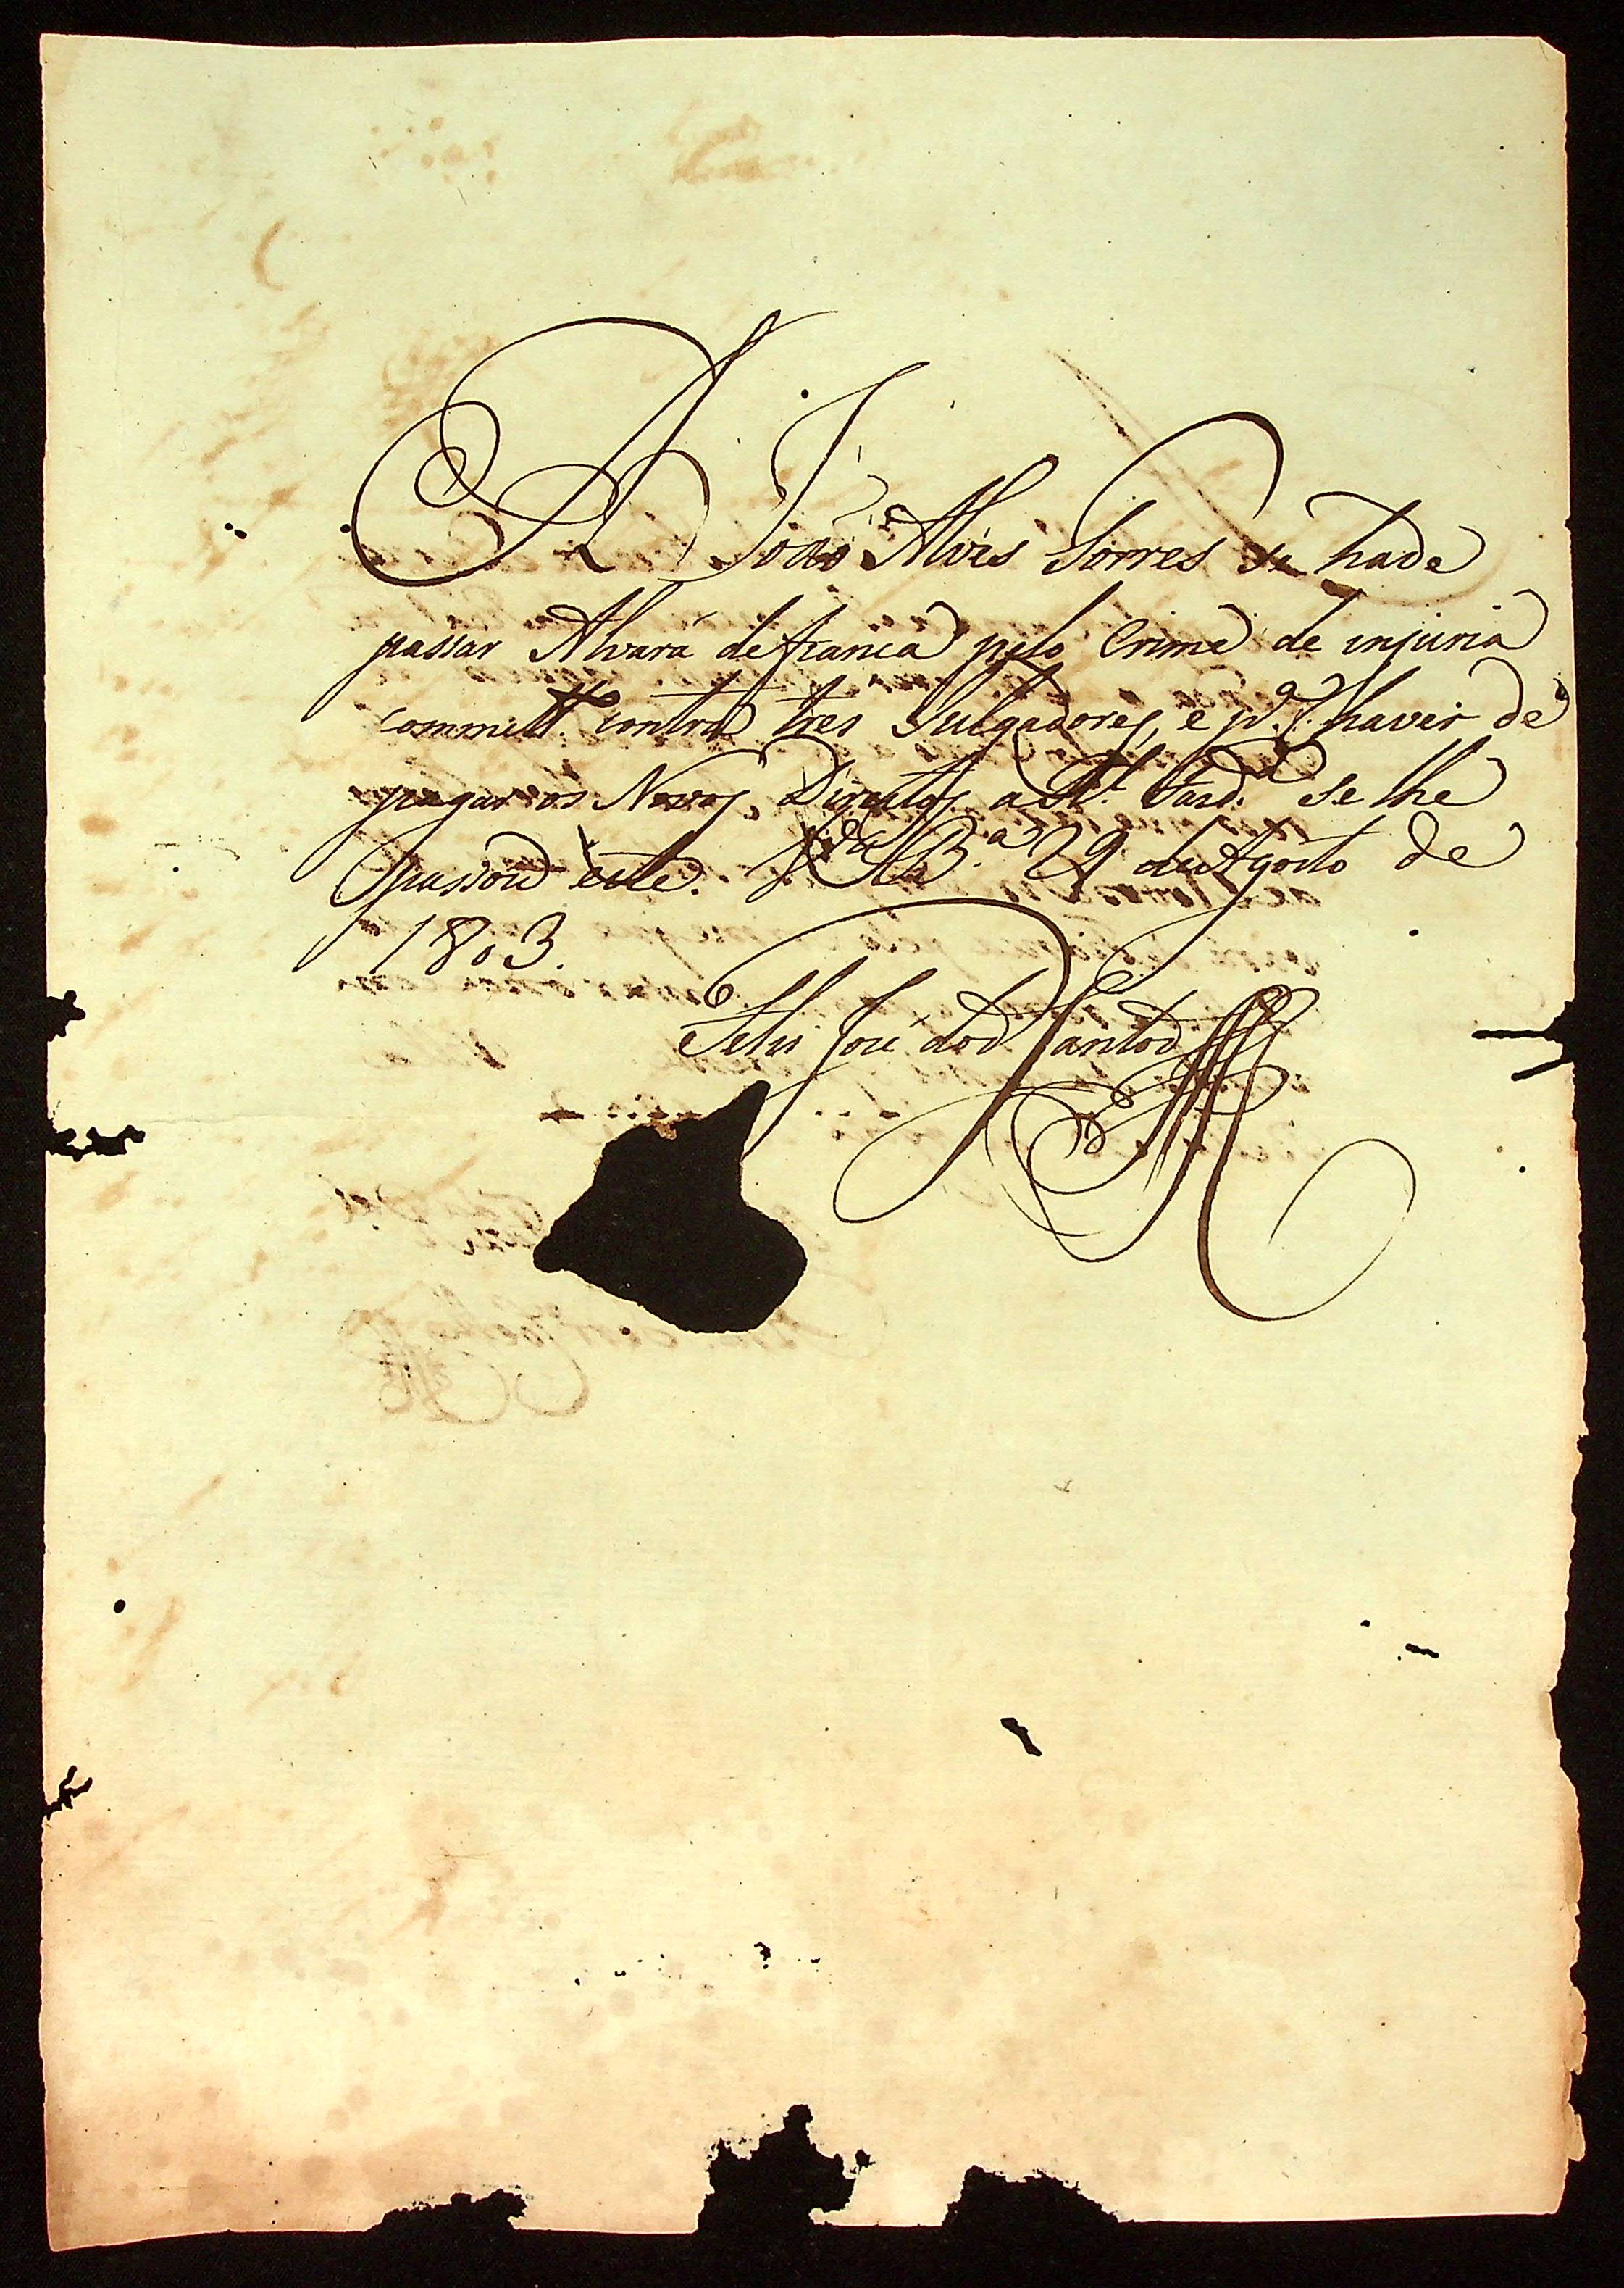 A João Alvẽs Torres se hade
passar Alvará defianca pelo Crime de injuria
committ.º contra tres Julgadores, e p.ª haver de
pagar os Novos Direitos a R.l Fazd.ª se lhe
passou este. B.ª 29 de Agosto de
1803.
Felis José dos Santos